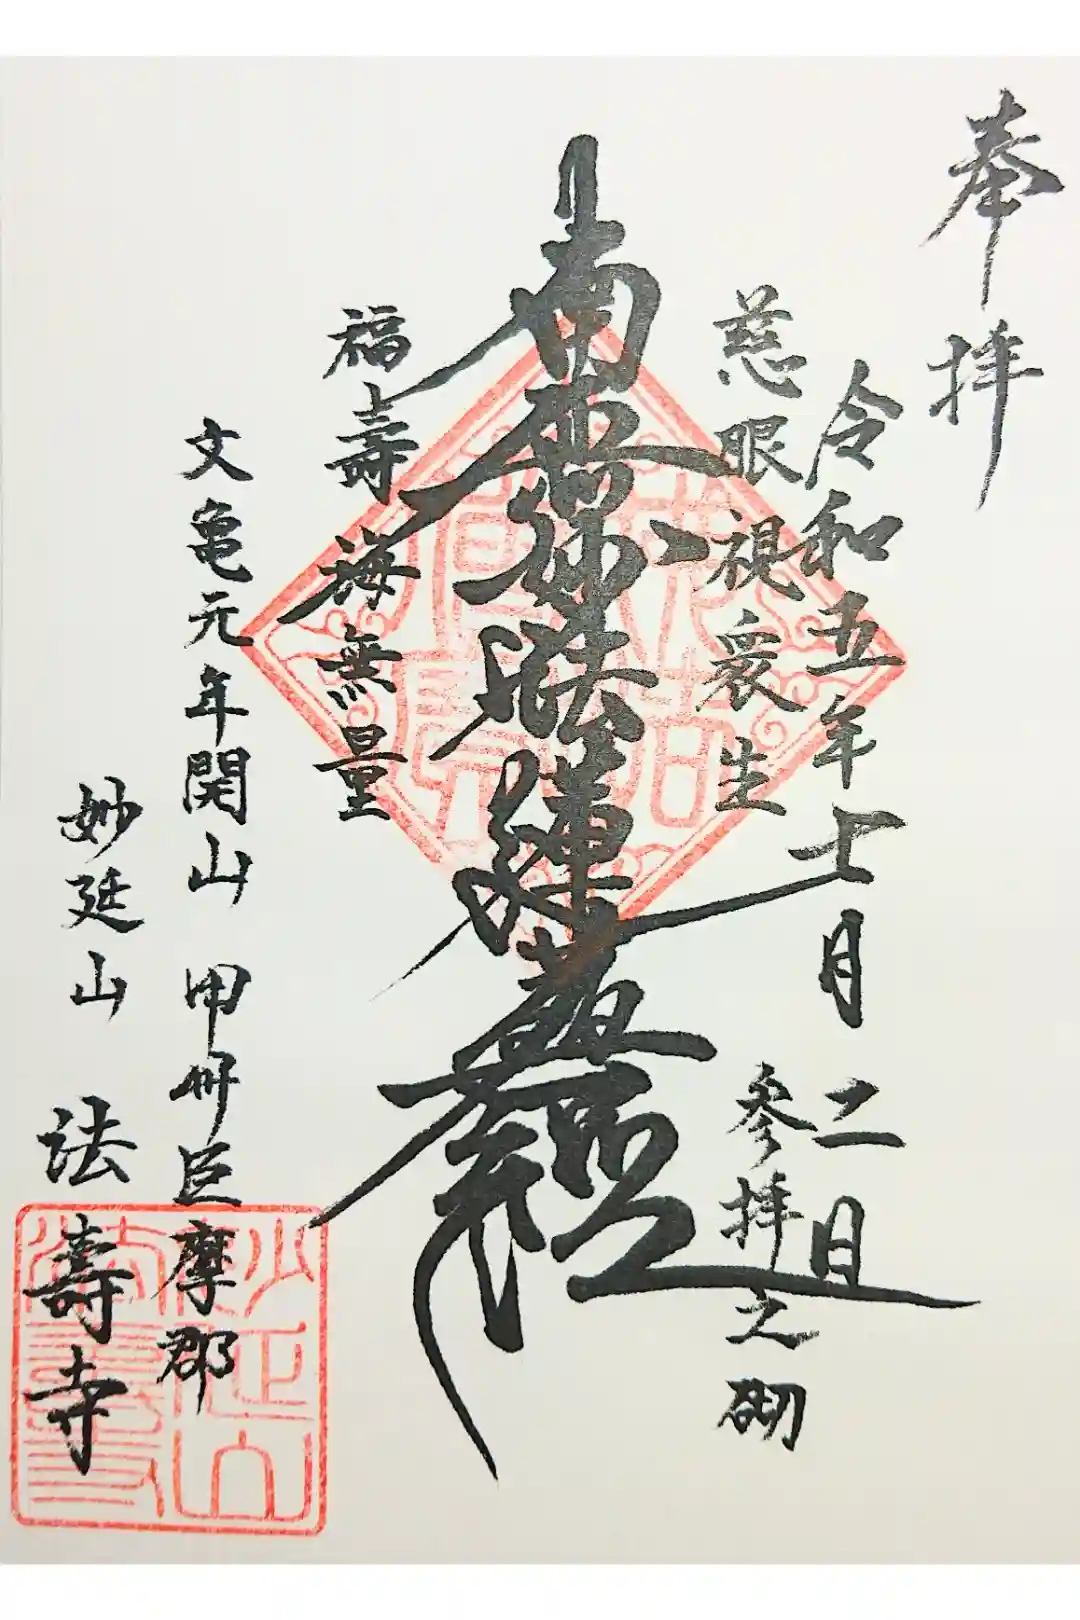 奉拝
令和五年十一月二日
慈眼視衆生
参拝之砌
南無妙法蓮華經
福壽海無量
文亀元年開山 甲州巨摩郡
妙延山 法壽寺